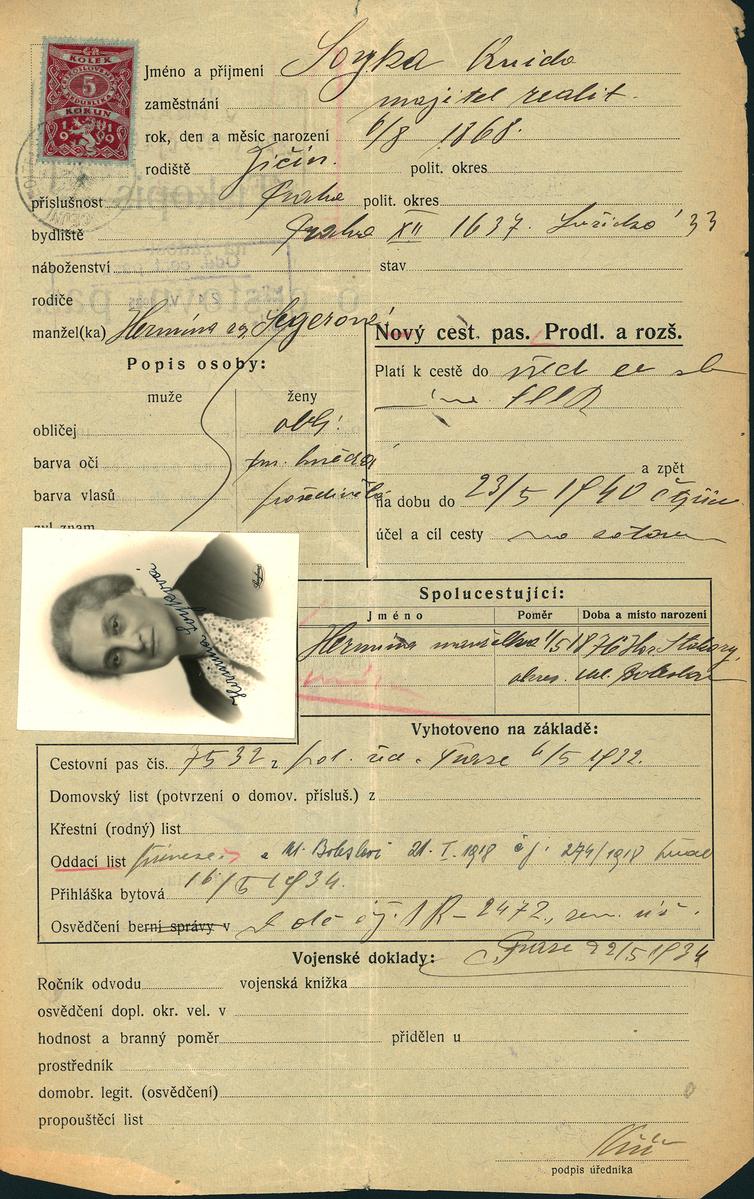 KOLEK
5
KORUN
1919
Jméno a příjmení Soyka Quido
zaměstnání majitel realit.
rok, den a měsíc narození 6/8 1868.
rodiště Jičín. polit. okres
příslušnost Praha polit. okres
bydliště Praha XII 1637.
náboženství stav
rodiče
manžel(ka) Hermína roz. Segerové
Nový cest. pas. Prodl. a rozš.
Popis osoby:
Platí k cestě do
muže ženy
obličej obl.
barva očí tm. hnědá
barva vlasů prošedivělá
zvl. znam.
a zpět
na dobu do 23/5 1940
účel a cíl cesty
Spolucestující:
Jméno Poměr Doba a místo narození
Hermína manželka 1/5 1876 Hor. Stakory,
okres. Ml. Boleslav
Hermina Soykova
Vyhotoveno na základě:
Cestovní pas čís. 7532 z pol. řed. v Praze 6/5 1932.
Domovský list (potvrzení o domov. přísluš.) z
Křestní (rodný) list
Oddací list Ml. Boleslavi 21. I. 1918 čj. 274/1918
Přihláška bytová 16/5 1934.
Osvědčení berní správy v čj. 1R-2472,
Praze 22/5 1934
Vojenské doklady:
Ročník odvodu vojenská knížka
osvědčení dopl. okr. vel. v
hodnost a branný poměr přidělen u
prostředník
domobr. legit. (osvědčení)
propouštěcí list
podpis úředníka